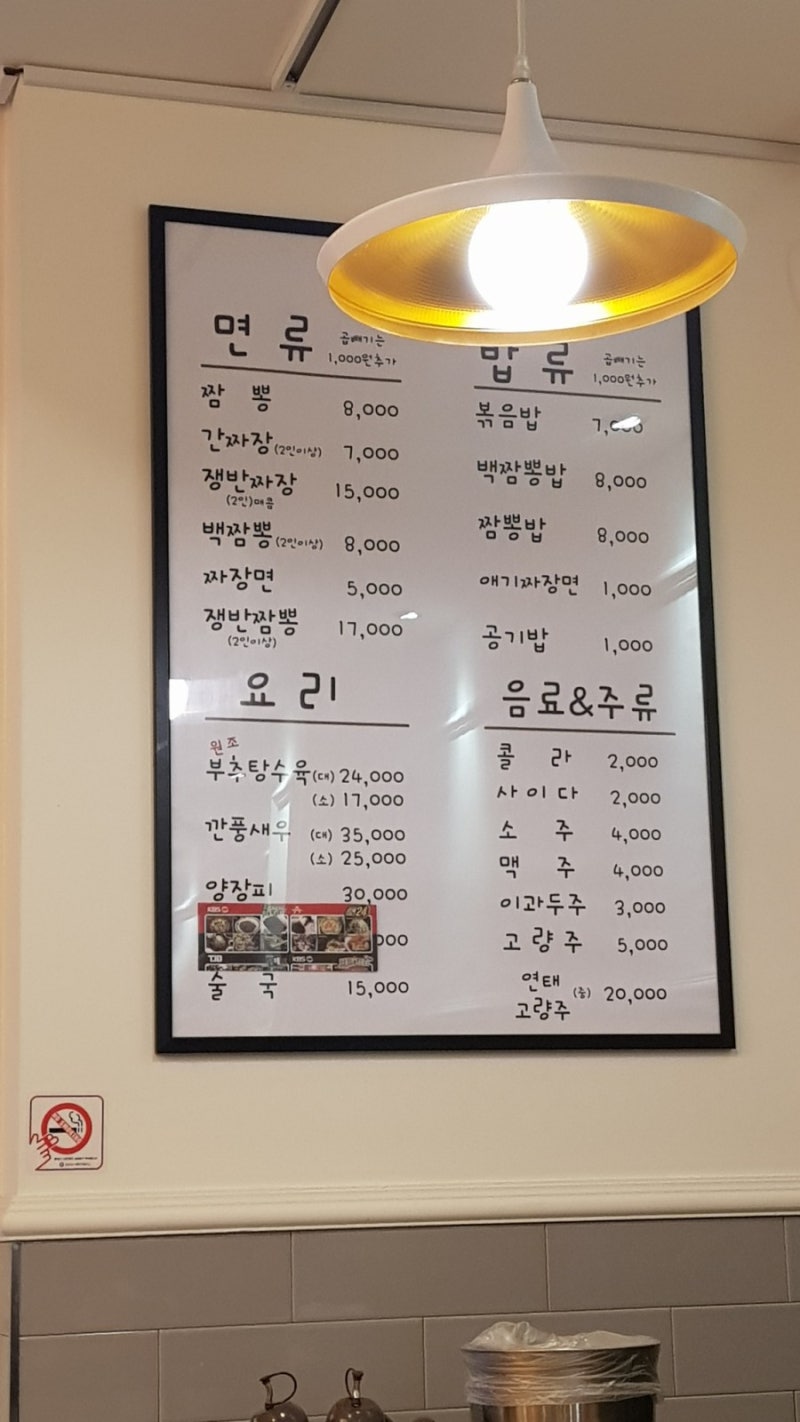 면 류
곱빼기는
1,000원추가
짬 뽕 8,000
간짜장(2인이상) 7,000
쟁반짜장 15,000
(2인)매콤
백짬뽕(2인이상) 8,000
짜장면 5,000
쟁반짬뽕 17,000
(2인이상)
요 리
원조
부추탕수육(대) 24,000
(소) 17,000
깐풍새우 (대) 35,000
(소) 25,000
양장피 30,000
술 국 15,000
밥 류
곱빼기는
1,000원추가
볶음밥 7,000
백짬뽕밥 8,000
짬뽕밥 8,000
애기짜장면 1,000
공기밥 1,000
음료&주류
콜 라 2,000
사이다 2,000
소 주 4,000
맥 주 4,000
이과두주 3,000
고량주 5,000
연태
고량주 (중) 20,000
KBS